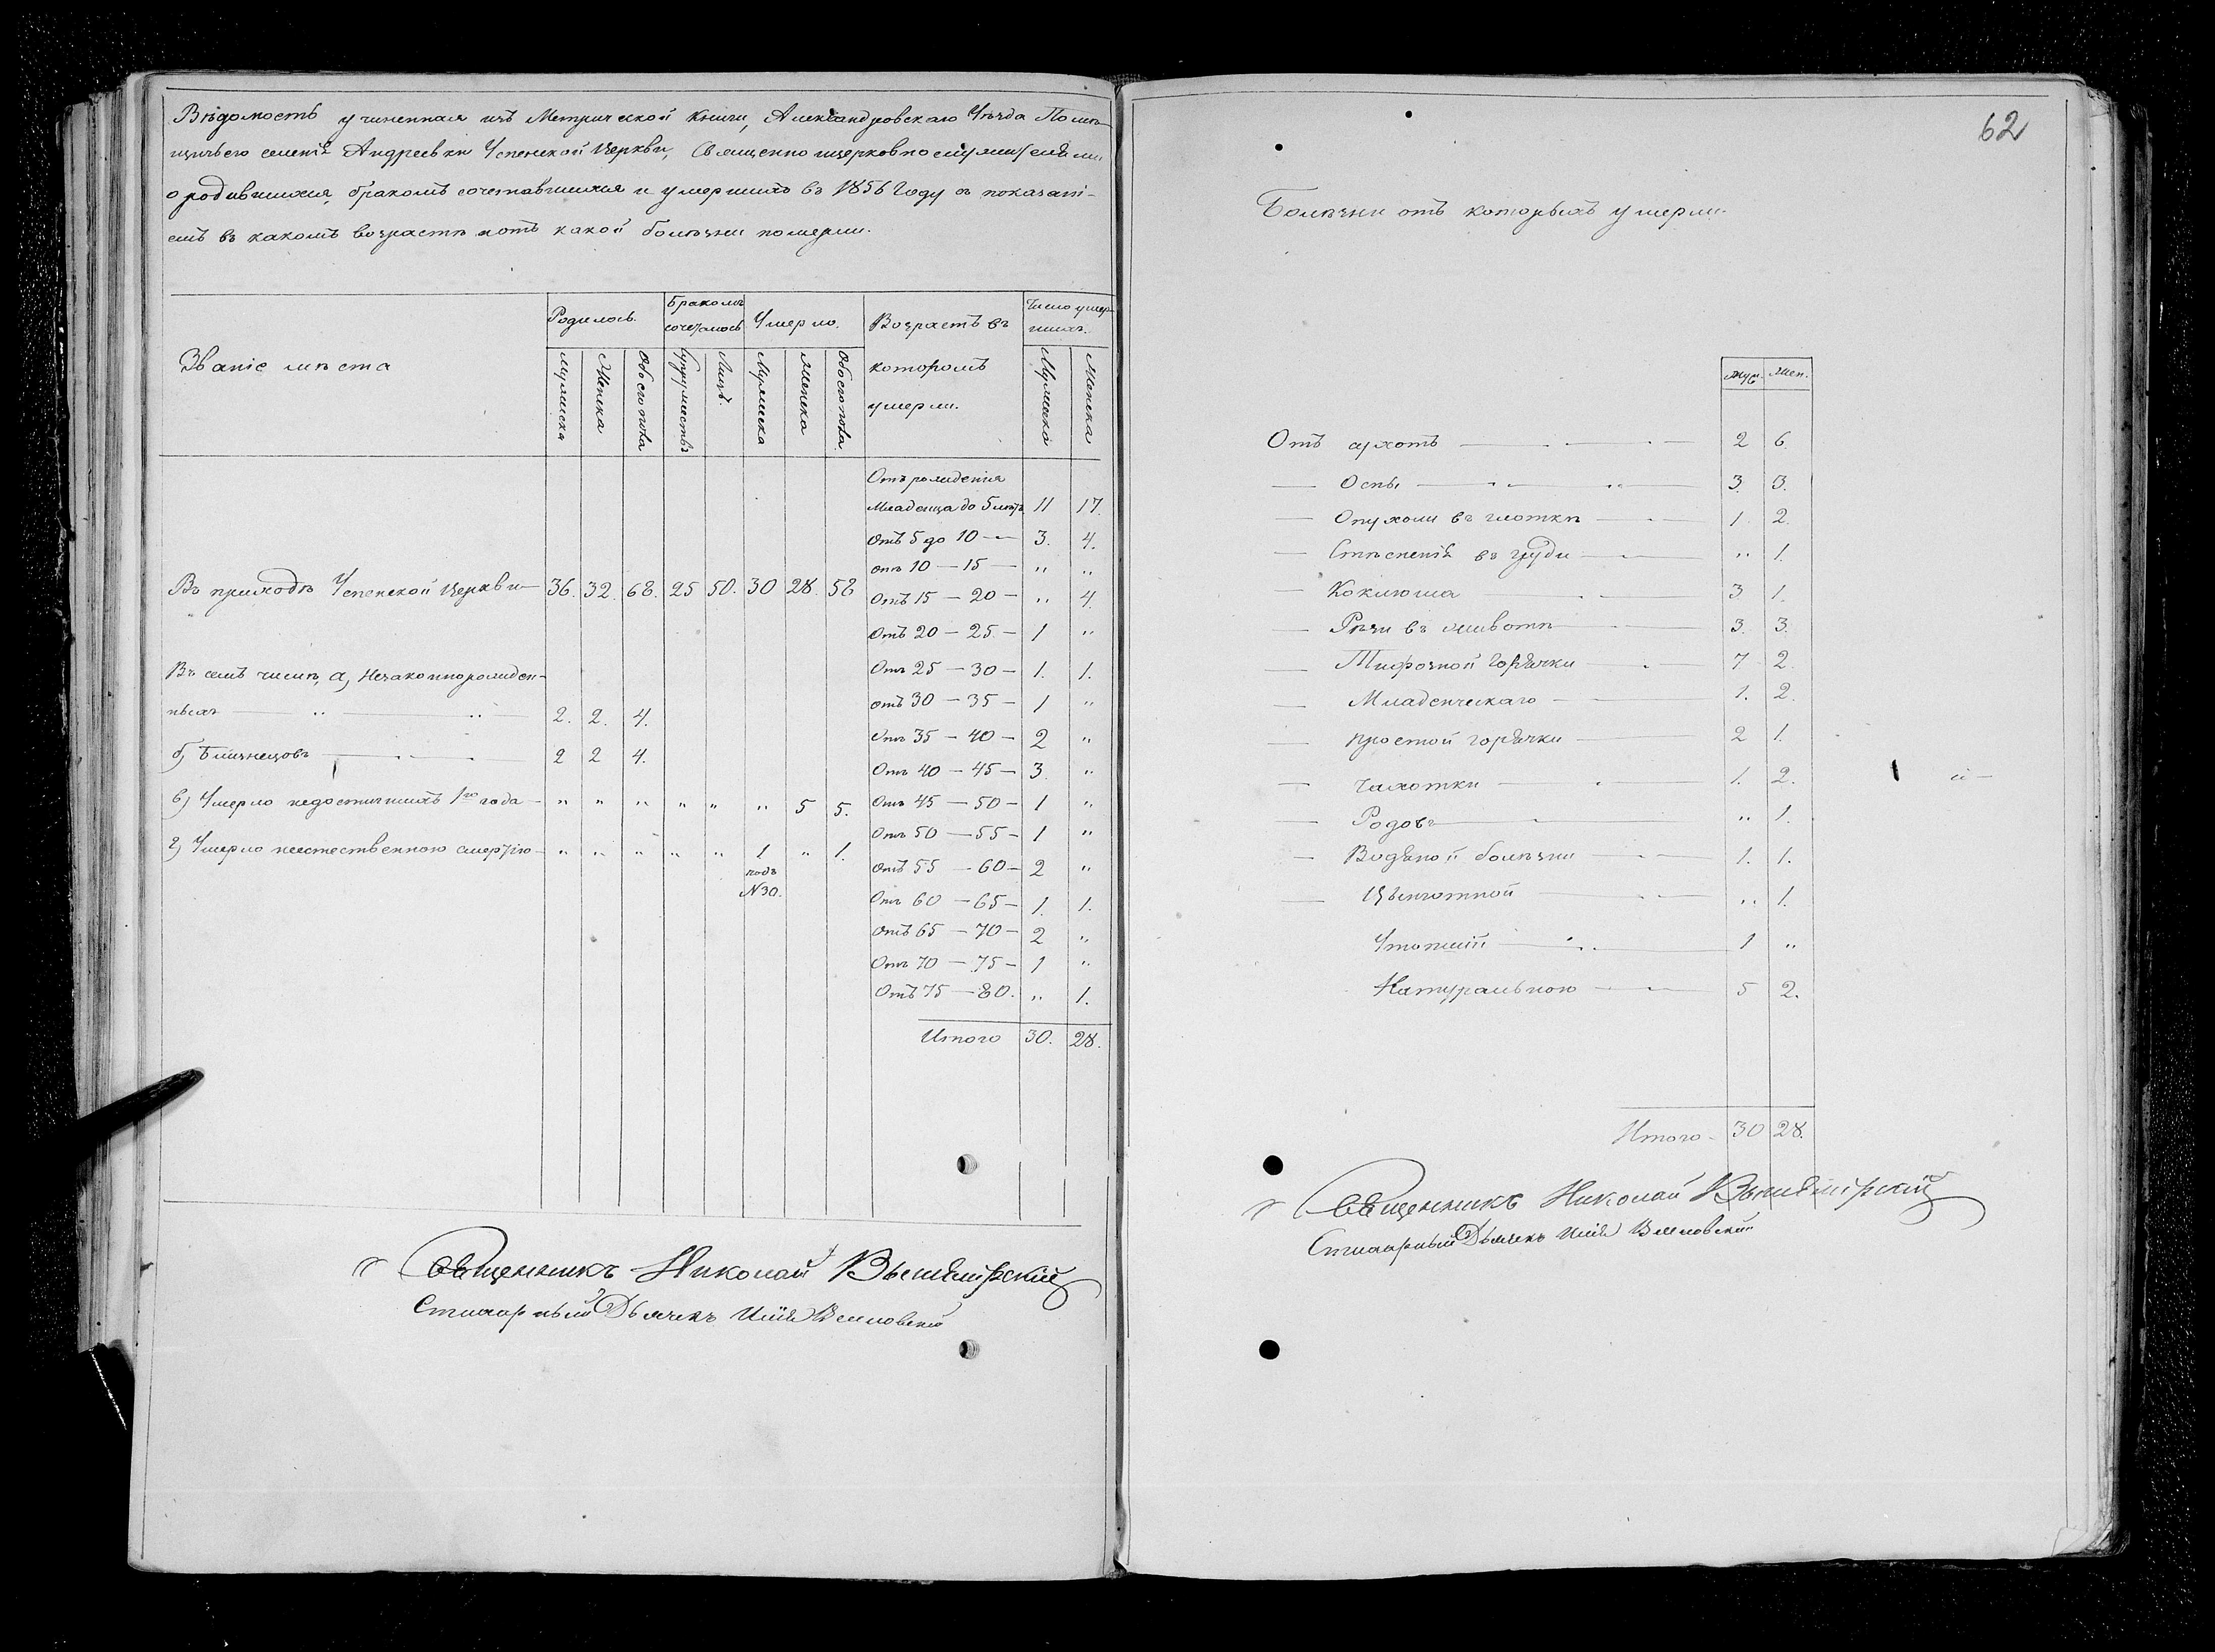 Вѣдомость учиненная изъ Метрической книги, Александровскаго Уѣзда Помѣ-
щичьего селенія Андреевки Успенской Церкви, Священно ицерковнослужителями
о родившихся, бракомъ сочетавшихся и умершихъ въ 1856 Году съ показані-
емъ въ какомъ возрастѣ иотъ какой болѣзни померли.
Званіе мѣста
Родилось.
Бракомъ сочеталось
Умерло.
Возрастъ въ которомъ умерли.
Число умершихъ.
Мужеска Женска Обоего пола Супружествъ Лицъ. Мужеска Женска Обоего пола Мужеска Женска
Отъ рожденія
Младенца до 5 лѣтъ 11 17.
Отъ 5 до 10 — 3. 4.
отъ 10 — 15 — „ „
Въ приходѣ Успенской Церкви — 36. 32. 68. 25 50. 30 28. 58
Отъ 15 — 20 — „ 4.
Отъ 20 — 25 — 1 „
Отъ 25 — 30 — 1. 1.
Въ семъ числѣ, а, Незаконнорожден-
ныхъ — „ — „ — 2. 2. 4.
отъ 30 — 35 — 1 „
Отъ 35 — 40 — 2 „
б, Близнецовъ — 2 2 4.
Отъ 40 — 45 — 3. „
в, Умерло недостигшихъ 1го года — „ „ „ „ „ „ 5 5.
Отъ 45 — 50 — 1 „
Отъ 50 — 55 — 1 „
г, Умерло неестественною смертію — „ „ „ „ „ 1 „ 1.
подъ
N 30.
Отъ 55 — 60 — 2 „
Отъ 60 — 65 — 1. 1.
Отъ 65 — 70 — 2 „
Отъ 70 — 75 — 1 „
Отъ 75 — 80. „ 1.
Итого 30. 28.
Священникъ Николай
Стихарный Дьячекъ Илія
62
Болѣзни отъ которыхъ умерли.
Муж. Жен.
Отъ сухотъ — 2 6.
— Оспы — 3. 3.
— Опухоли въ глоткѣ — 1. 2.
— Стѣсненія въ груди — „ 1.
— Коклюша — 3 1.
— Рѣзи въ животѣ — 3. 3.
— Тифозной горячки — 7 2.
— Младенческаго — 1. 2.
— простой горячки — 2 1.
— Чахотки — 1. 2.
— Родовъ — „ 1.
— Водяной болѣзни — 1. 1.
— Цынготной — „ 1.
Утопшій — 1 „
Натуральною — 5 2.
Итого — 30 28.
Священникъ Николай
Стихарный Дьячекъ Илія